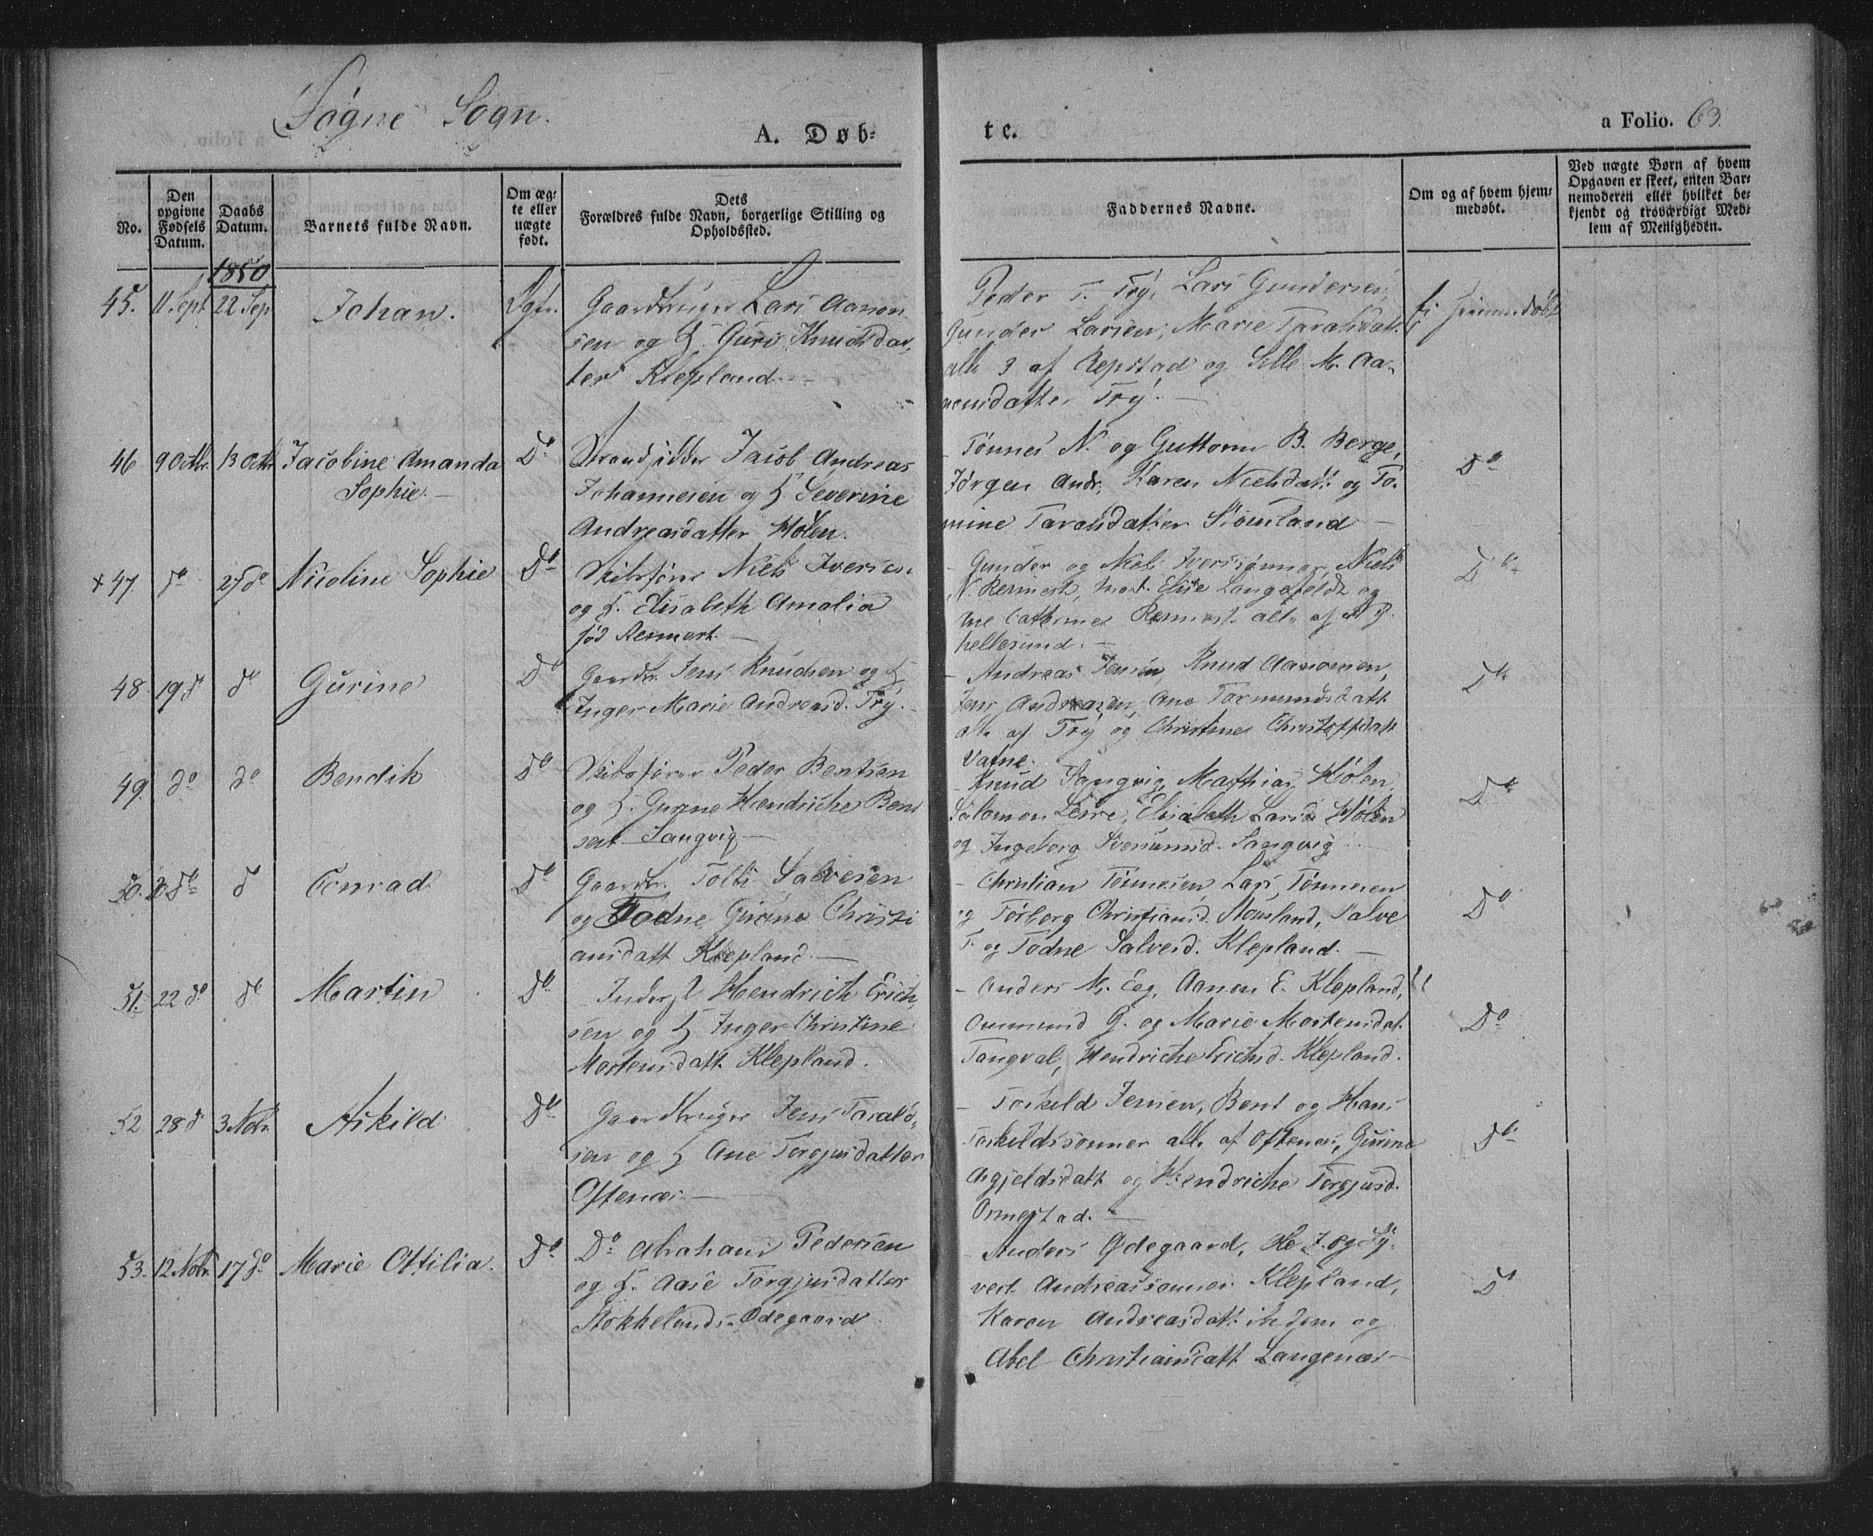 Søgne Sogn.
A. Døb-
te.
a Folio. 63.
No.
Den opgivne Fødsels Datum.
Daabs Datum.
Barnets fulde Navn.
Om ægte eller uægte født.
Dets Forældres fulde Navn, borgerlige Stilling og Opholdssted.
Faddernes Navne.
Om og af hvem hjemmedøbt.
Ved uægte Børn af hvem Opgaven er skeet, enten Barnemoderen eller hvilket bekjendt og troværdigt Medlem af Menigheden.
1850
45. 11. Sept 22 Sep Johan. Ægte.
Gaardbruger Lars Aanon
sen og H. Guri Knudsdat
ter Klepland.
Peder T. Try, Lars Gundersen,
Gunder Larsen, Marie Taraldsdatt.
alle 3 af Repstad og Sille M. Aa-
nensdatter Try.
Ei hjemmedøbt
46 9 Octbr. 13 Octbr Jacobine Amanda
Sophie. Do
Strandsidder Jacob Andreas
Johannesen og H Severine
Andreasdatter Hølen.
Tønnes N. og Guttorm B. Berge,
Jørgen Andr, Karen Nielsdatt. og To-
mine Taraldsdatter Stousland
Do
x 47. do 27 do Nicoline Sophie Do
Skibsfører Niels Iversen
og H. Elisabeth Amalia
fød Reimert.
Gunder og Niels Iverssønner, Niels
N. Reimert, Elise Langfeldt og
Cathrine Reimert alle af Ny
hellesund.
Do
48 19 d do Gurine Do
Gaardbr. Jens Knudsen og H
Inger Marie Andreasd. Try.
Andreas Jensen, Knud Aanonsen,
Jens Andreasen, Ane Tormundsdatt
alle af Try og Christine Christoffdatt
Vatne.
Do
49. do do Bendik Do
Skibsfører Peder Bentsen
og H. Gurine Hendriche Bent
sen Langvig
Knud Langvig, Mathias Hølen,
Salomon Leire, Elisabeth Larsd. Hølen
og Ingeborg Langvig
Do
50. 20. do d Conrad Do
Gaardbr. Tolli Salvesen
og Todne Gurine Christi
ansdatt Klepland.
Christian Tønnesen Lars Tønnesen
og Torborg Christiansd. Stousland, Salve
T. og Todne Salvesd. Klepland.
Do
51. 22 do do Martin Do
Inderst Hendrich Erich
sen og H Inger Christine
Mortensdatt. Klepland.
Anders M. Eeg, Aanon E. Klepland,
Oumund G. og Marie Mortensdat.
Tangval, Hendriche Erichsd. Klepland.
Do
52 28 d 3 Nobr. Askild Do
Gaardbruger Jens Tarald-
sen og H Ane Torgjusdatter
Oftenes.
Torkild Jensen, Bent og Hans
Torkildssønner alle af Oftenes, Gurine
Asgjeldsdatt og Hendriche Torgjusd.
Ormestad.
Do
53. 12 Nobr. 17 do Marie Ottilia. Do
Do Abraham Pedersen
og H. Aase Torgjusdatter
Stokkelands-Ødegaard
Anders Ødegaard, Ole J. og Sy-
vert Andreassønner Klepland,
Karen Andreasdatt. ibidem og
Abel Christiansdatt Langenæs
Do